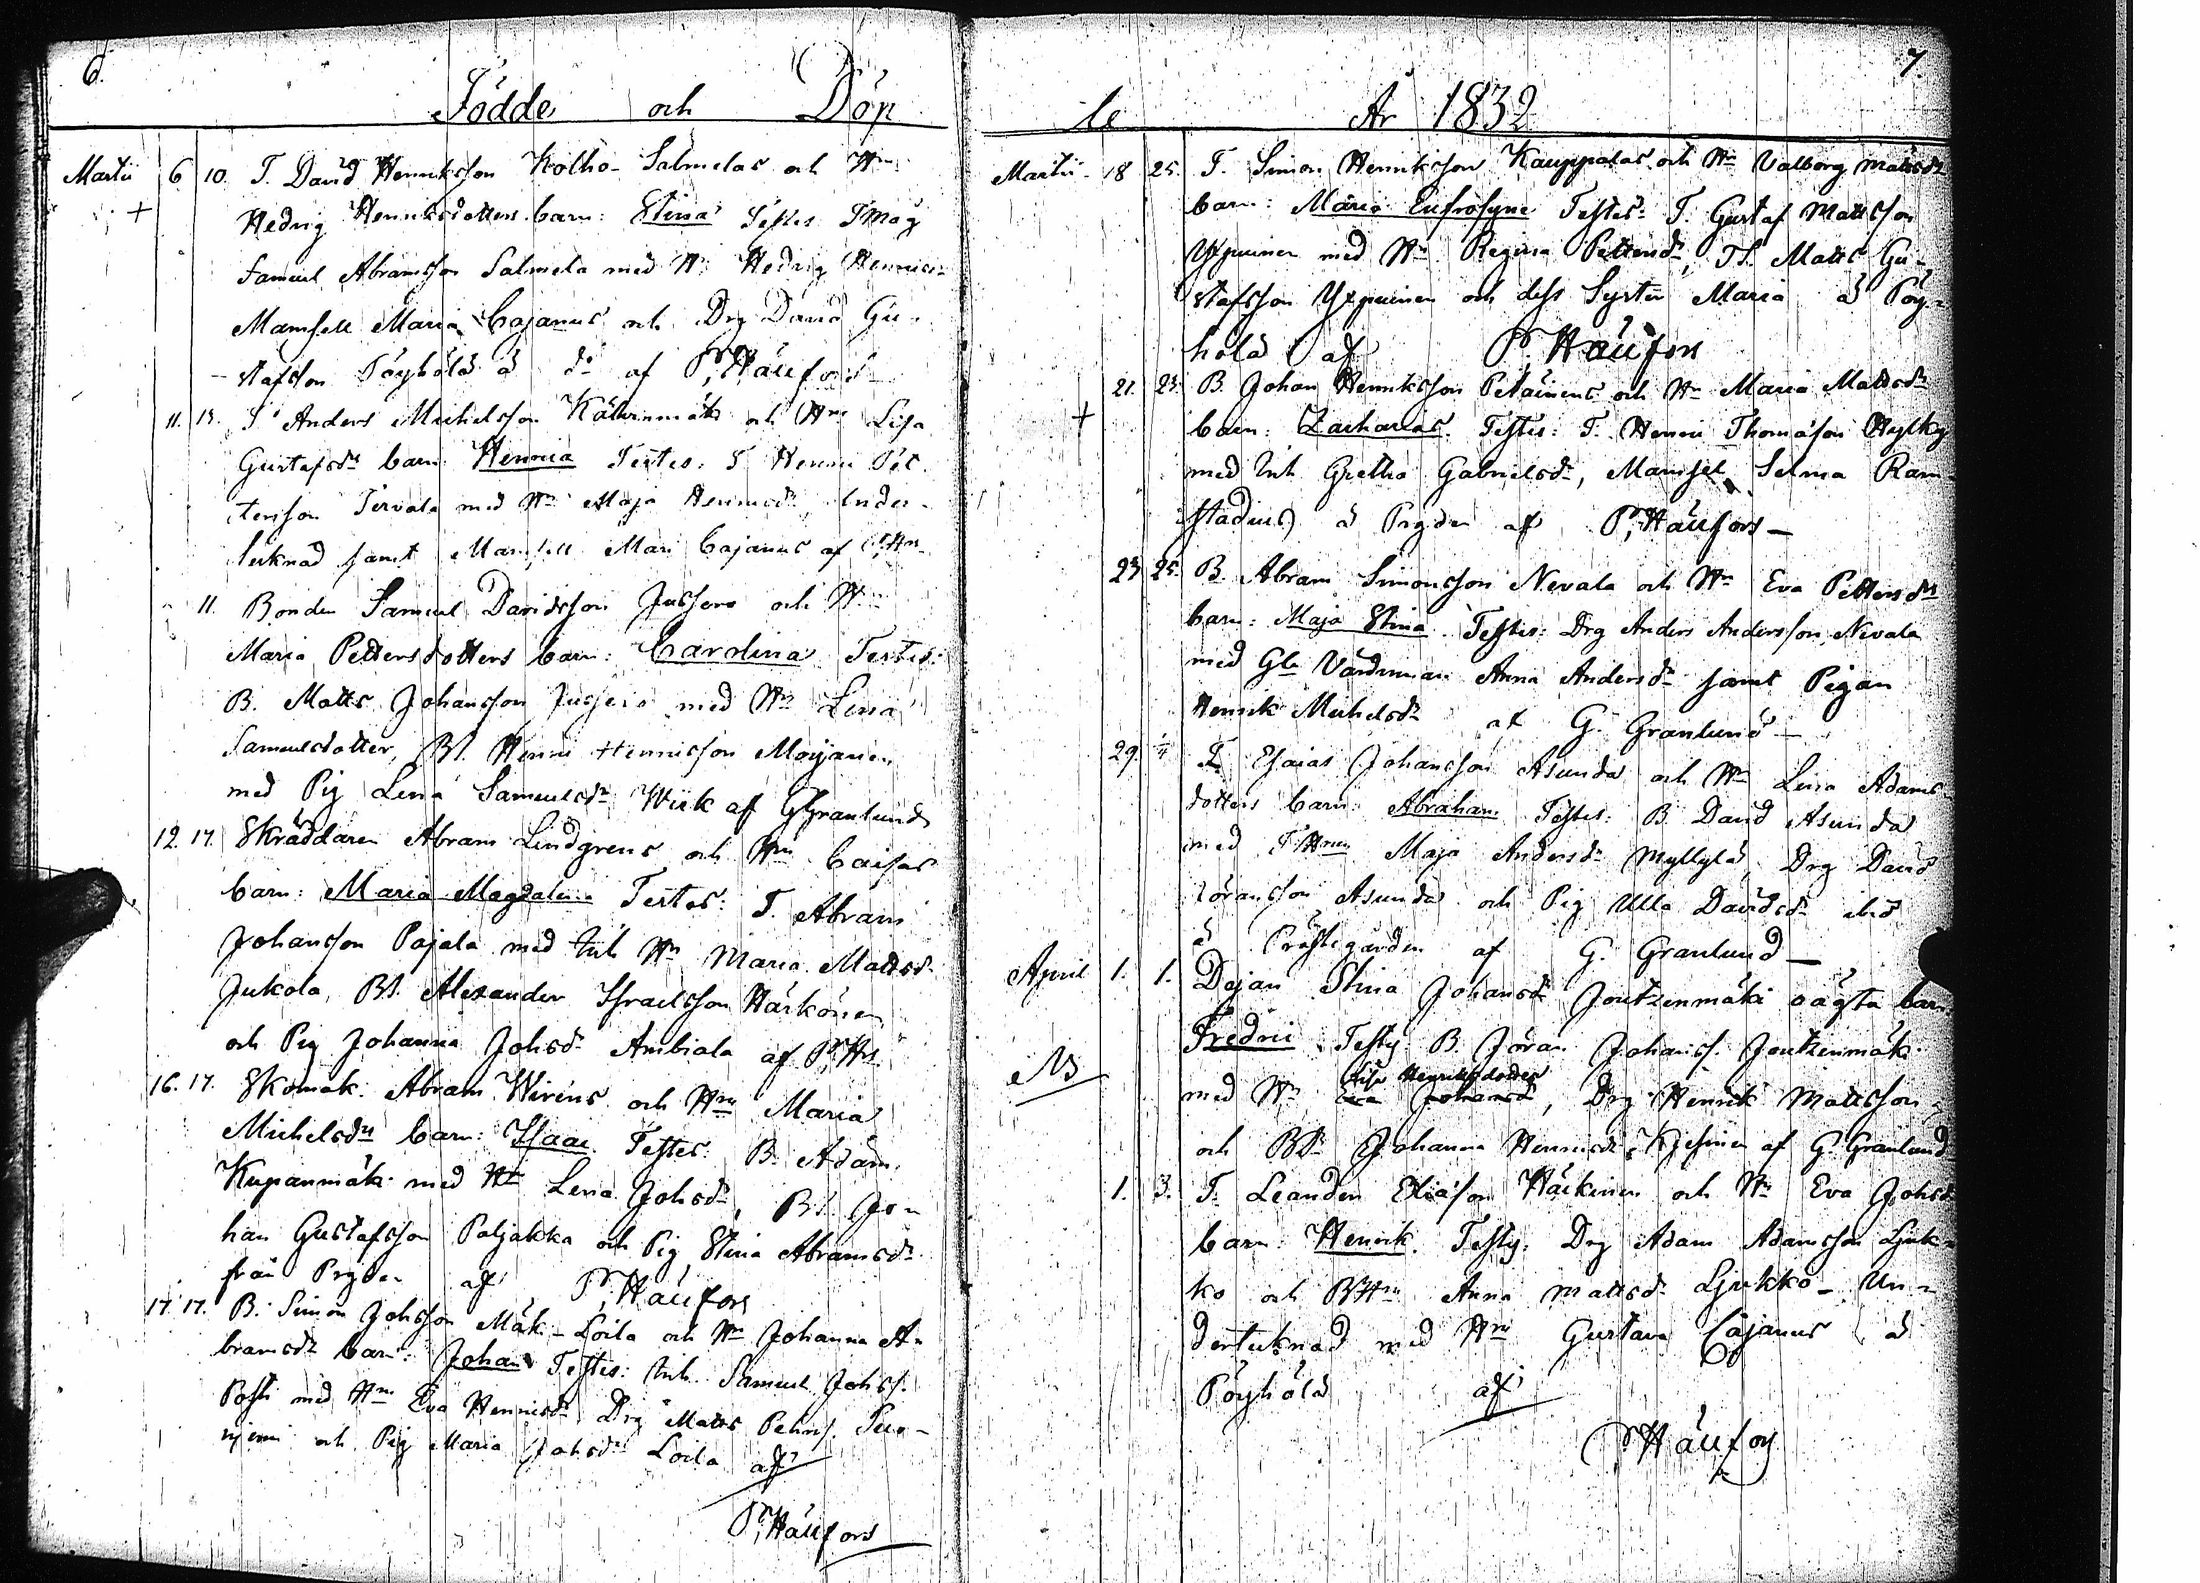 6.
Födde och Döp
Martii 6 10. T. David Henriksson Kolho-Salmelas och H:n
+ Hedvig Henriksdotters barn: Stina Testes T.Måg
Samuel Abramsson Salmela med H:n Hedvig Henrics
Mamsell Maria Cajanus och Drg David Gu-
stafsson Pöyhölä å d:o af P. Häufors
11. 13. T Anders Michelsson och H:ns Lisa
Gustafsd:rs barn Henrica Testes: T Henric Pet
tersson Tervala med H:n Maja Henricsd:r Under-
tecknad samt Mamsell Mari Cajanus af P. Hrs
11. Bonden Samuel Davidsson Jussero och H:n
Maria Pettersdotters barn: Carolina Testes:
B. Matts Johansson Jussero med H:n Lena
Samuelsdotter, BS. Henric Henricsson Moijanen
med Pig Lena Samuelsd:r Wiik af GGranlund
12. 17. Skräddaren Abram Lindgrens och H:n Caisas
barn: Maria Magdalena Testes: T. Abram
Johansson Pajala med Inh H:n Maria Mattsd:r
Jukola, BS. Alexander Israelsson Härkönen
och Pig Johanna Johsd:r Ambiala af P. Hrs
16. 17. Skomak: Abram Wirens och H:ns Maria
Michelsd:rs barn: Isaac. Testes: B. Adam
Kupanmäki med H:n Lena Johsd:r, BS. Jo-
han Gustafsson Paljakka och Pig Stina Abramsd:r
från Prgden af P. Häufors
17. 17. B. Simon Johsson Mäki-Loila och H:n Johanna A-
bramsd:r barn: Johan Testes: Inh. Samuel Johss.
Posti med H:n Eva Henricsd:r Drg Matts Pehrs.
och Pig Maria Johsd:r Loila af
P. Häufors
7.
te År 1832
Martii 18 25. T. Simon Henriksson Kauppalas och H:n Valborg Mattsd:r
barn: Maria Eufrosyne Testes: T. Gustaf Mattsson
Yxpuinen med H:n Regina Pettersd:r, TS. Matts Gu-
stafsson Yxpuinen och dess Syster Maria å Pöy-
hölä af P. Häufors
21. 23. B. Johan Henriksson Petäinens och H:n Maria Mattsd:r
+ barn: Zacharias. Testes: T. Henric Thomasson Hylky
med Inh Gretha Gabrielsd:r, Mamsel Selma Ram-
stadius å Prgden af P. Häufors
23 25. B. Abram Simonsson Nevala och H:n Eva Pettersd:rs
barn: Maja Stina. Testes: Drg Anders Andersson Nevala
med Gla Värdinnan Anna Andersd:r samt Pigan
Henrik Michelsd:r af G. Granlund
29. " T. Esaias Johansson Asunda och H:n Lena Adams-
dotters barn: Abraham Testes: B. David Asunda
med T.H:n Maja Andersd:r Myllylä, Drg David
Göransson Asunda och Pig Ulla Davidsd:r ibid
å Prästegården af G. Granlund
April 1. 1. Dejan Stina Johansd:r Joutzenmäki oägta barn
Fredric Testes B. Jöran Johanss. Joutzenmäki
NB
Lisa Henriksdotter
med H:n Eva Johansd:r, Drg Henrik Mattsson
och BD:r Johanna Henricsd:r af G. Granlund
1. 3. T. Leander Eliasson Häkinen och H:n Eva Johsd:r
barn: Henrik. Testes: Drg Adam Adamsson Ljuk-
ko och BH:n Anna Mattsd:r Ljukko- Un-
dertecknad med H:ru Gustava Cajanus å
Pöyhölä af
P. Häufors